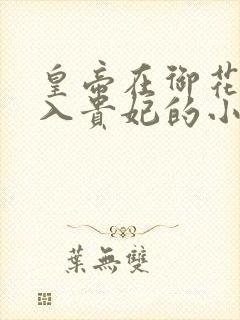 皇帝在御花
入貴妃的小
葉無雙